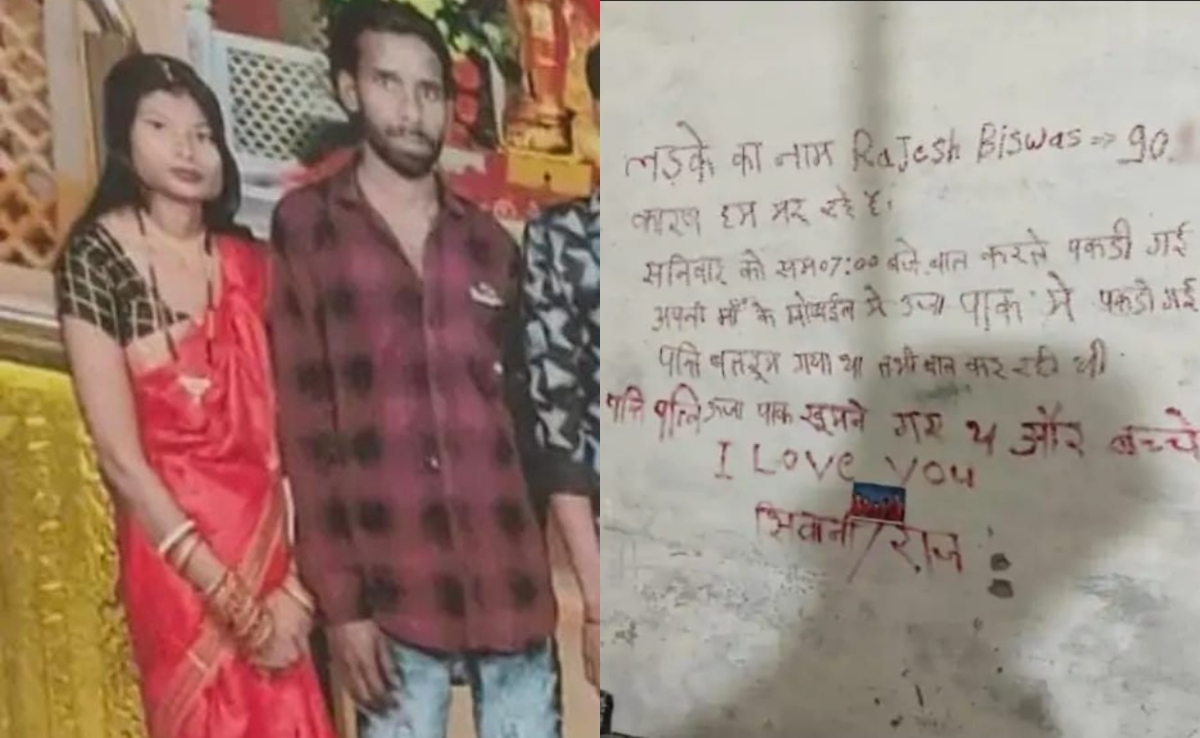 लड़के का नाम RaJesh Biswas => 90
कारण हम मर रहे है।
सनिवार को सम 07:00 बजे बात करते पकडी गई
अपनी माँ के मोबाईल मे उजा पाक मे पकडी गई
पत्ति बतरूम गया था तभी बात कर रही थी
पत्ति पत्नि ऊजा पाक खूमने गए थ और बच्चे
I Love You
शिवानी/राज